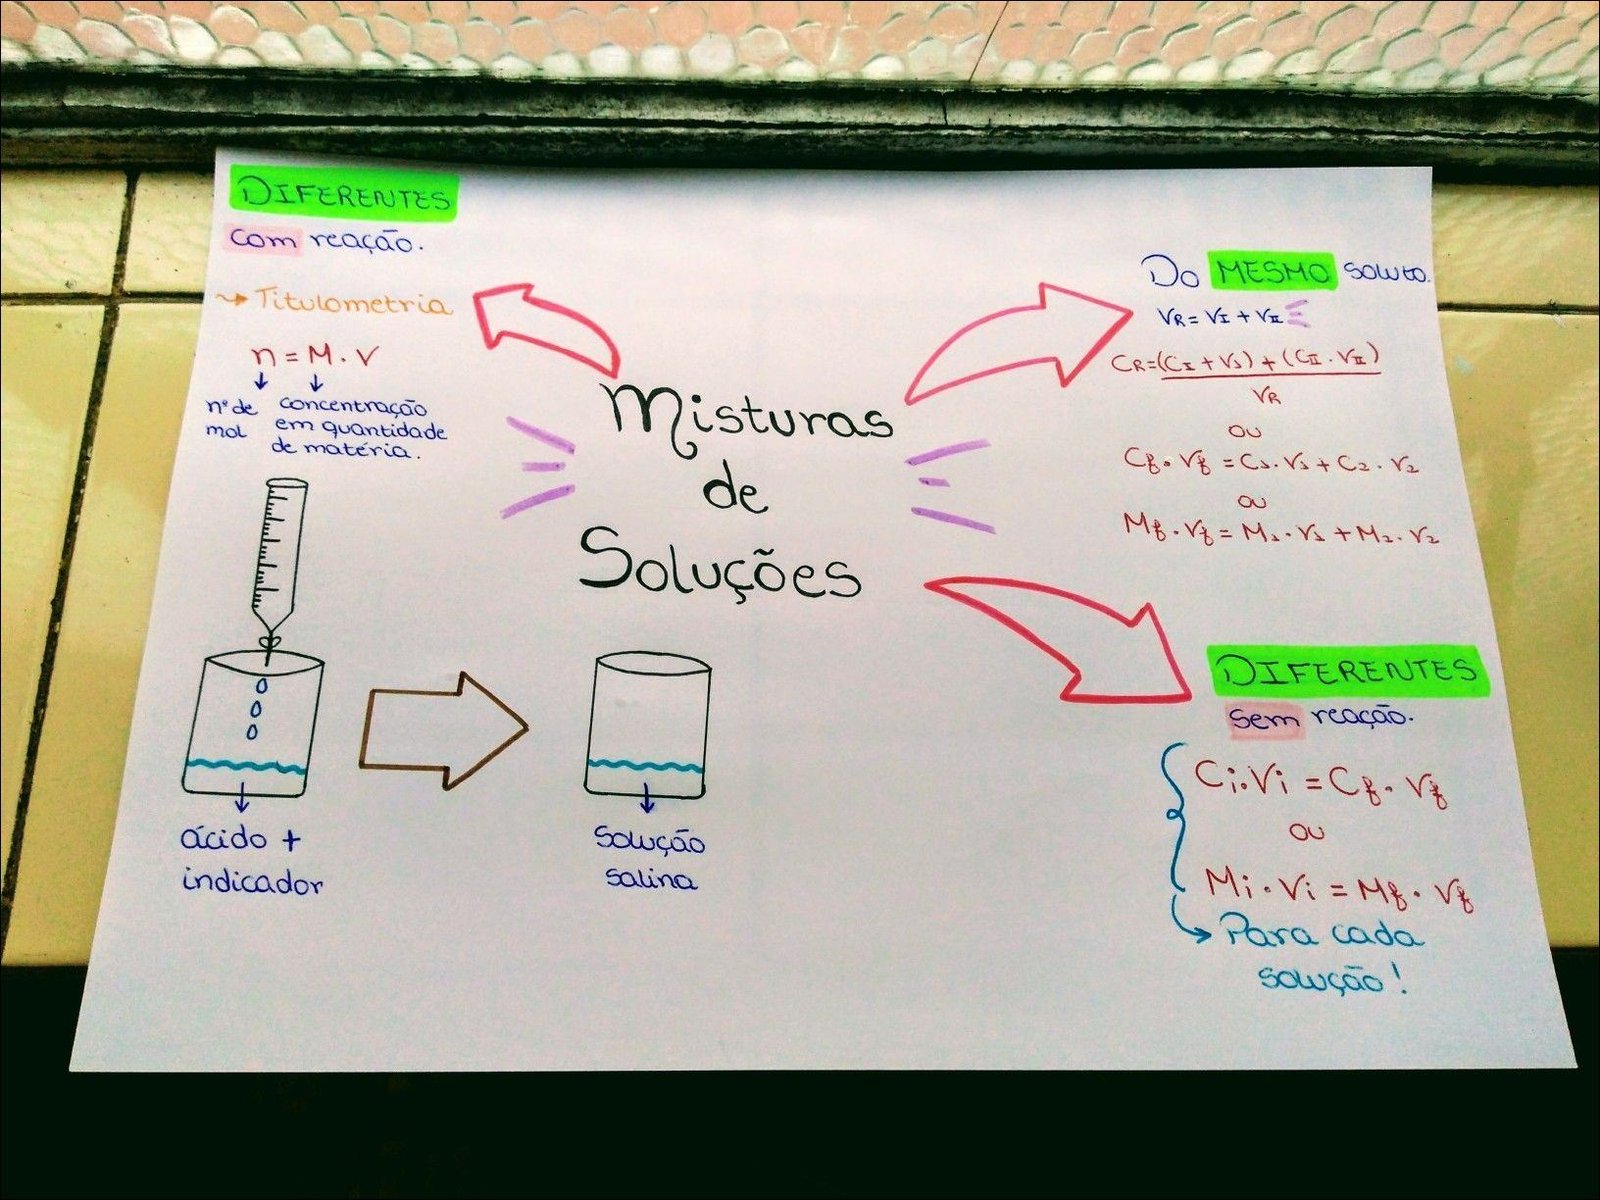 DIFERENTES
com reação.
Titulometria
n = M . V
nº de mol
concentração
em quantidade
de matéria.
ácido +
indicador
Solução
salina
Misturas
de
Soluções
Do MESMO soluto.
VR = VI + VII
CR = (CI + V1) + (CII . VII)
VR
ou
Cf . Vf = C1 . V1 + C2 . V2
ou
Mf . Vf = M1 . V1 + M2 . V2
DIFERENTES
sem reação.
Ci . Vi = Cf . Vf
ou
Mi . Vi = Mf . Vf
Para cada
solução!